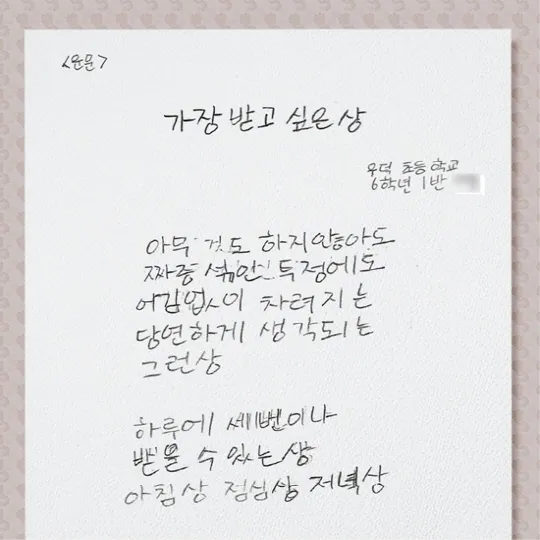 <운문>
가장 받고 싶은 상
우덕 초등학교
6학년 1반
아무 것도 하지 않아도
짜증 섞인 투정에도
어김없이 차려지는
당연하게 생각되는
그런상
하루에 세번이나
받을 수 있는 상
아침상 점심상 저녁상